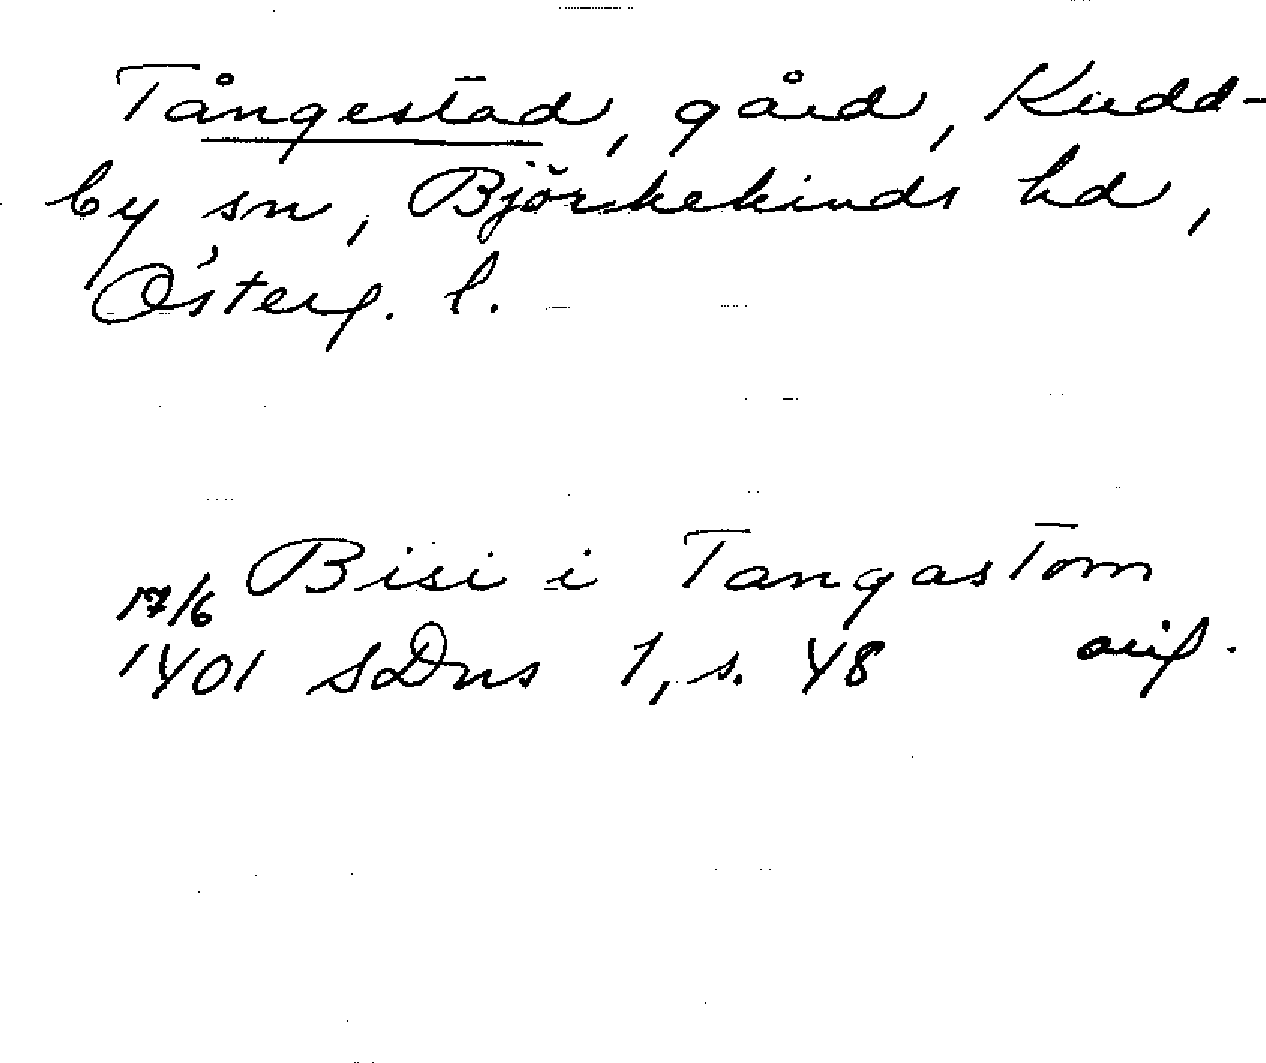 Tångestad, gård, Kudd-
by sn, Björkekinds hd,
Österg. l.
Bisi i Tangastom
17/6
1401 SDns 1, s. 48 orig.